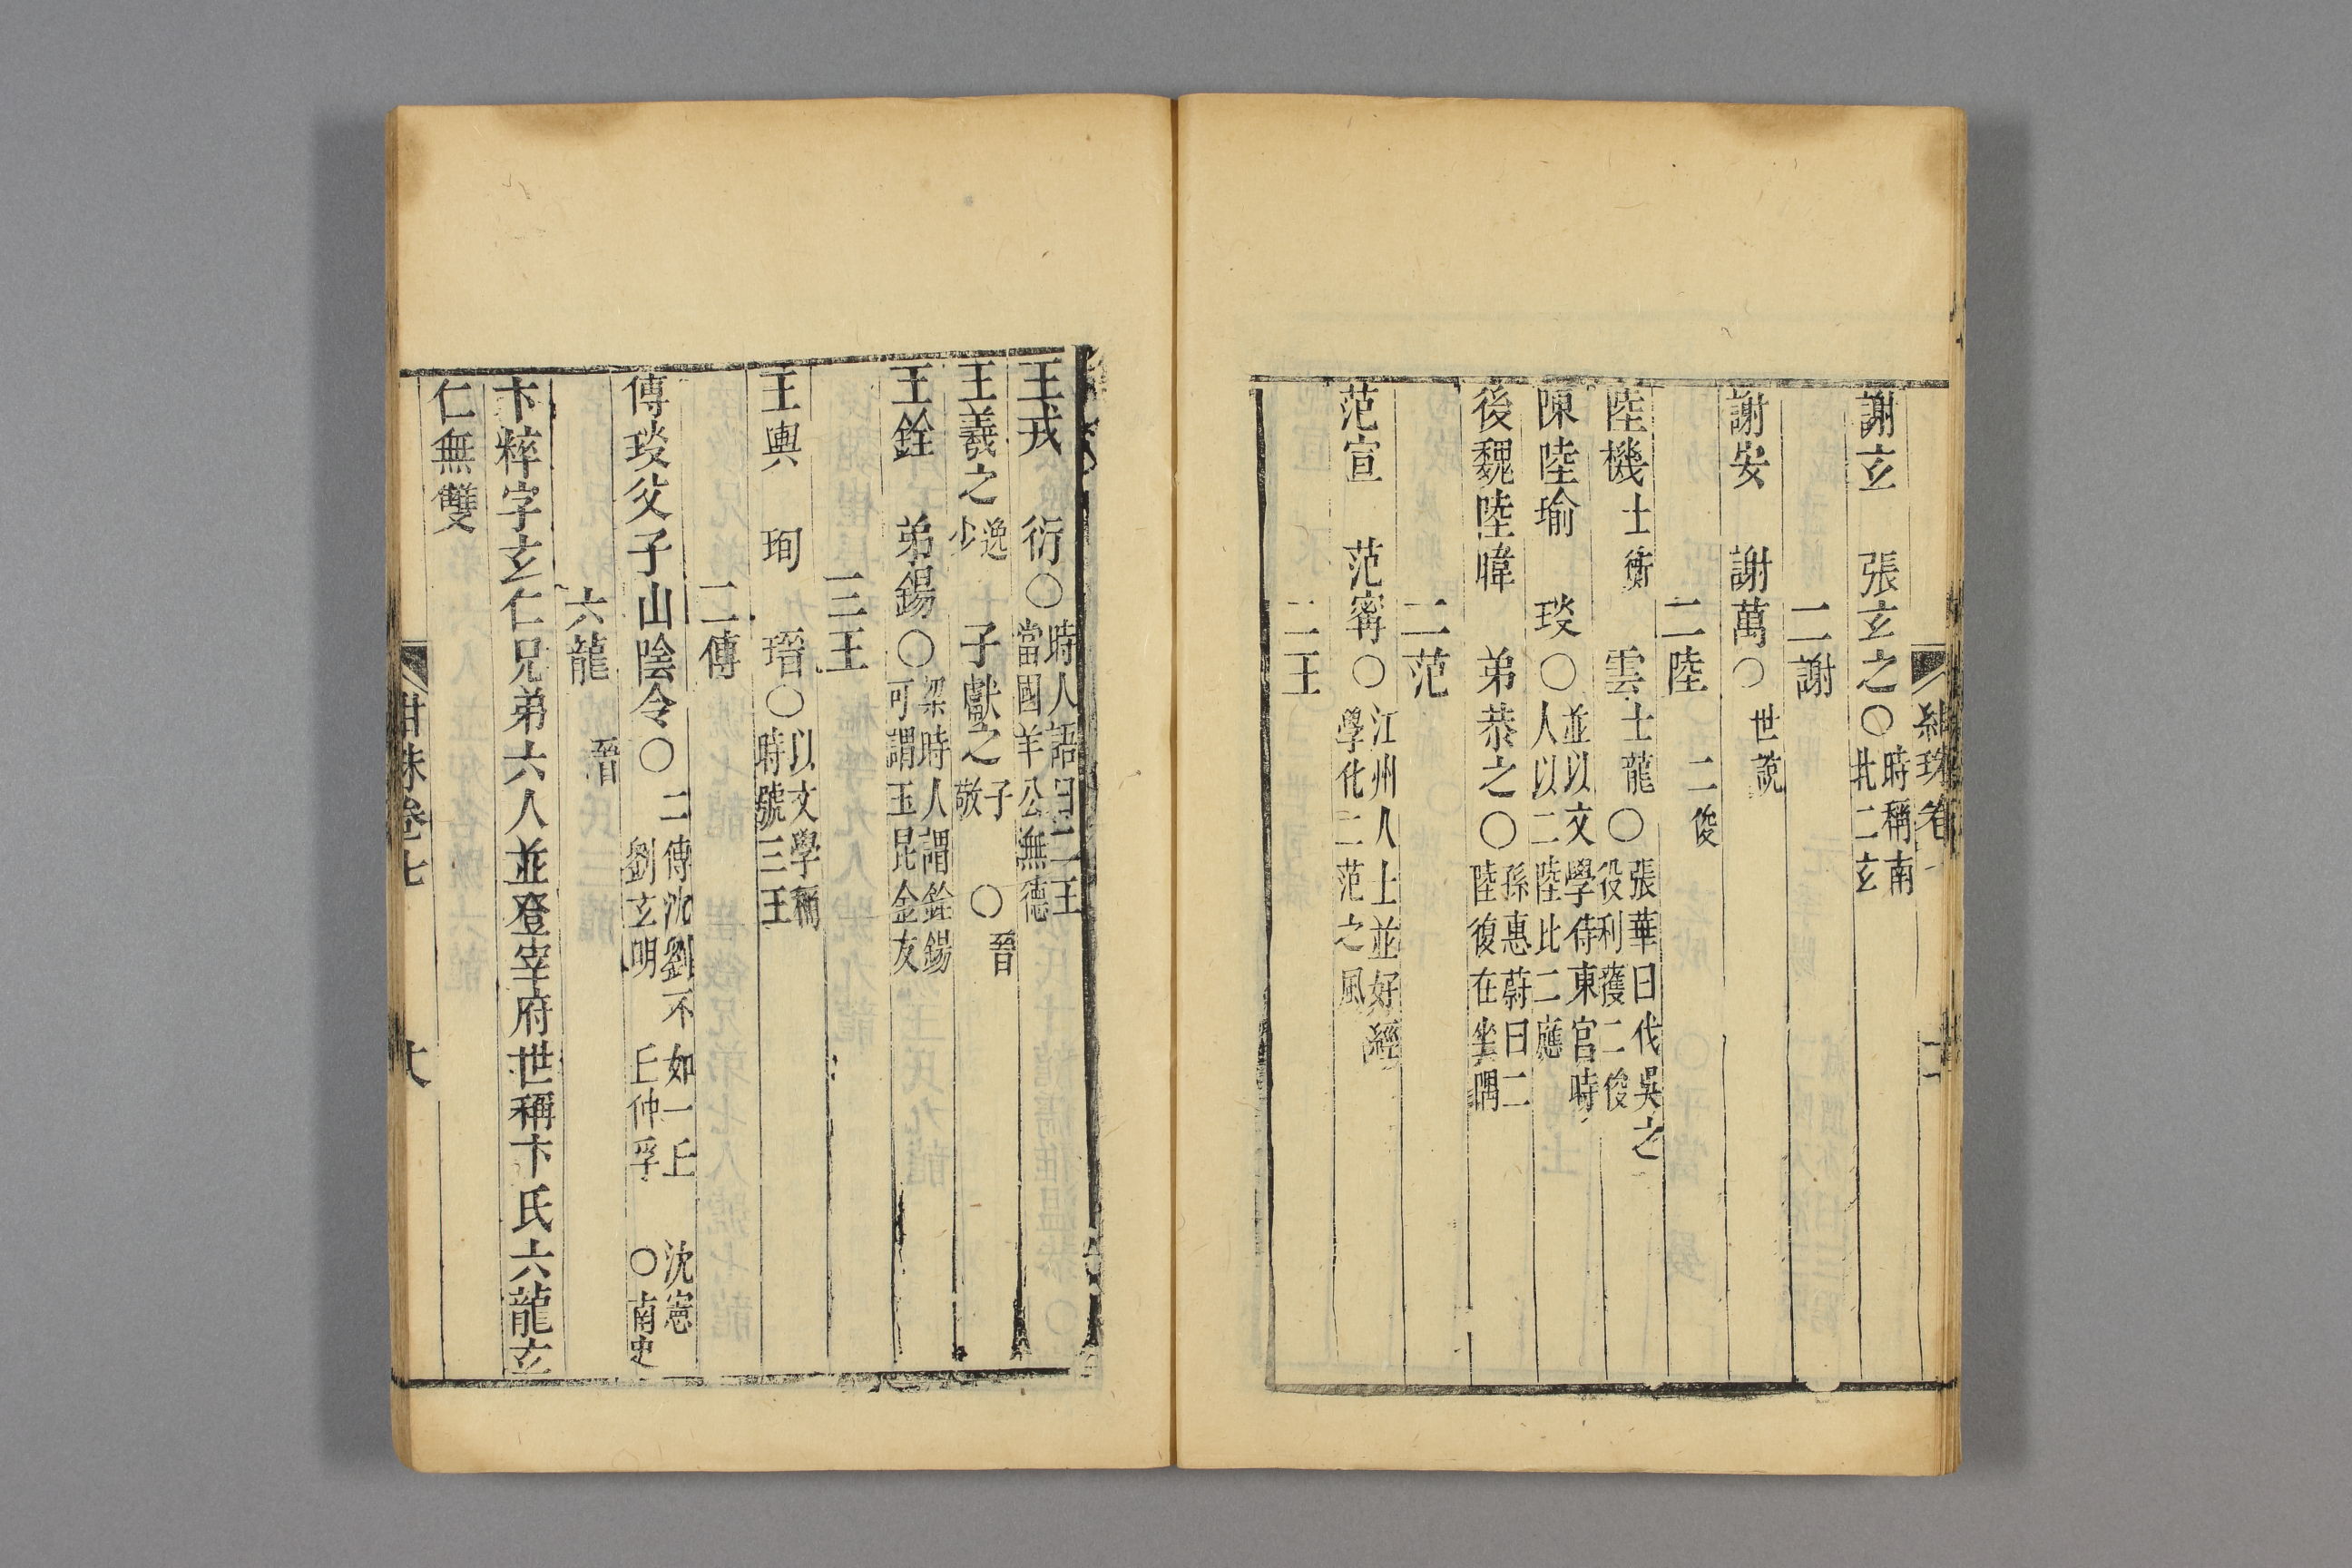 紺珠卷
十一
謝玄　張玄之○時稱南北二玄
二謝
謝安　謝萬○世説
二陸　二俊
陸機士衡　雲士龍○張華曰伐吳之役利獲二俊
陳陸瑜　琰○並以文學侍東宮時人以二陸比二應
後魏陸暐　弟恭之○孫惠蔚曰二陸復在坐隅
二范
范宣　范甯○江州人士並好經學化二范之風
二王
王戎　衍○時人語曰二王當國羊公無德
王羲之逸少　子獻之子敬○晉
王銓　弟錫○梁時人謂銓錫可謂玉昆金友
三王
王輿　珣　瑨○以文學稱時號三王
二傳
傳琰父子山陰令○二傳沈劉不如一丘　沈憲劉玄明　丘仲孚　○南史
六龍　晉
卞粹字玄仁兄弟六人並登宰府世稱卞氏六龍玄
仁無雙
紺珠卷七
大